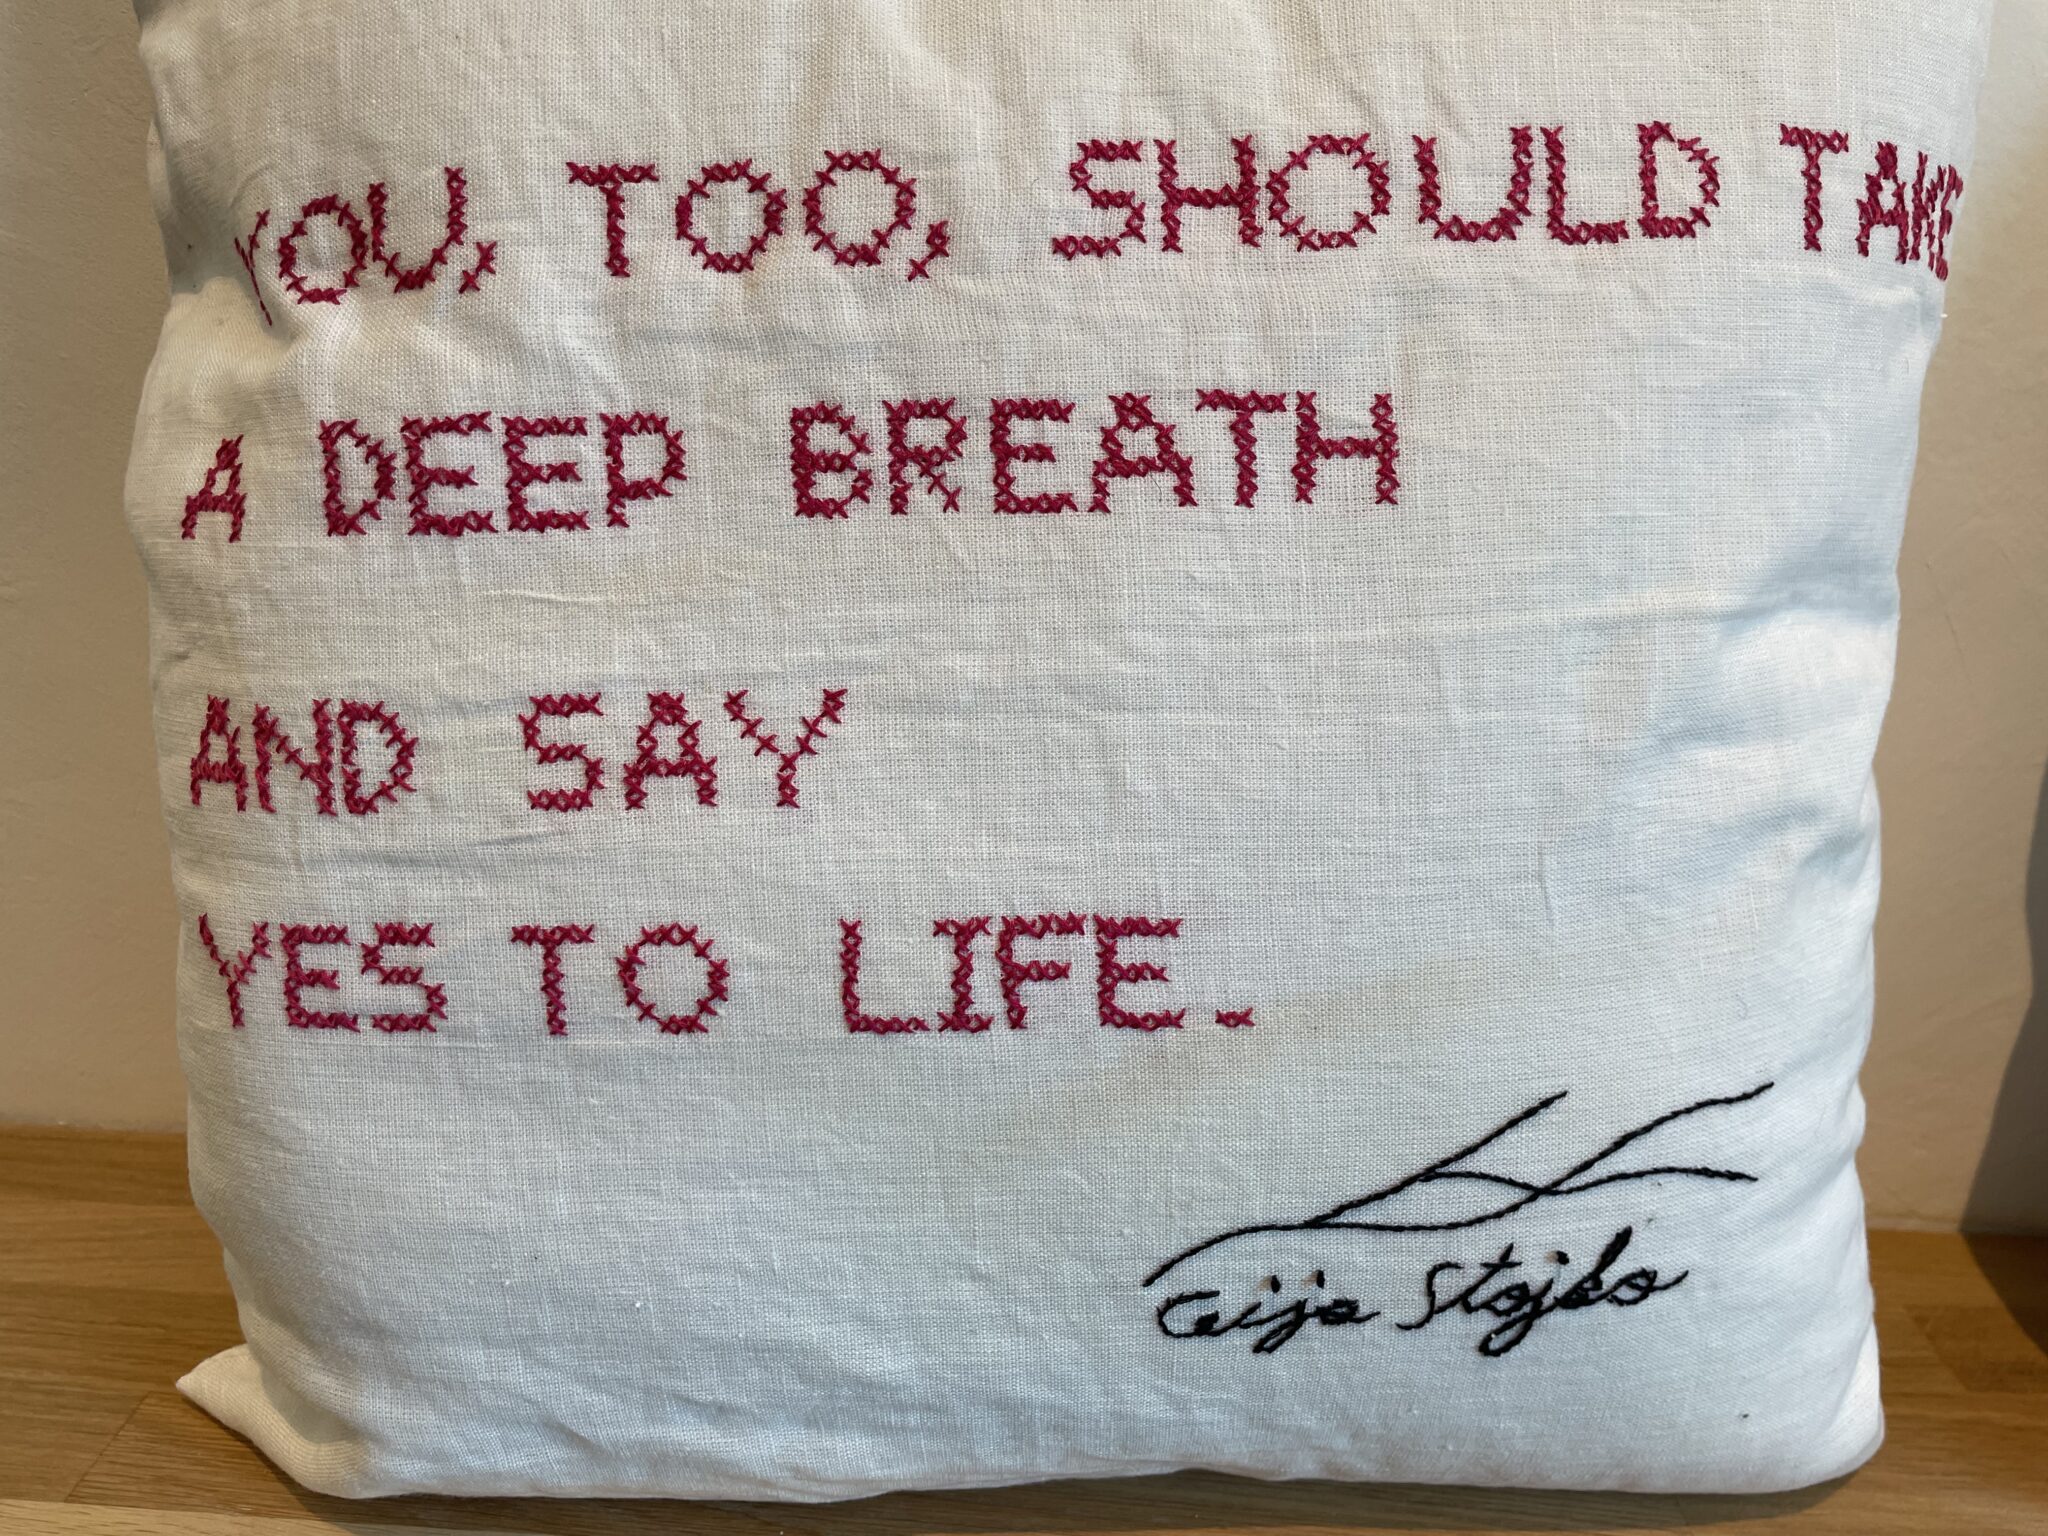 YOU, TOO, SHOULD TAKE
A DEEP BREATH
AND SAY
YES TO LIFE.
Ceija Stojka